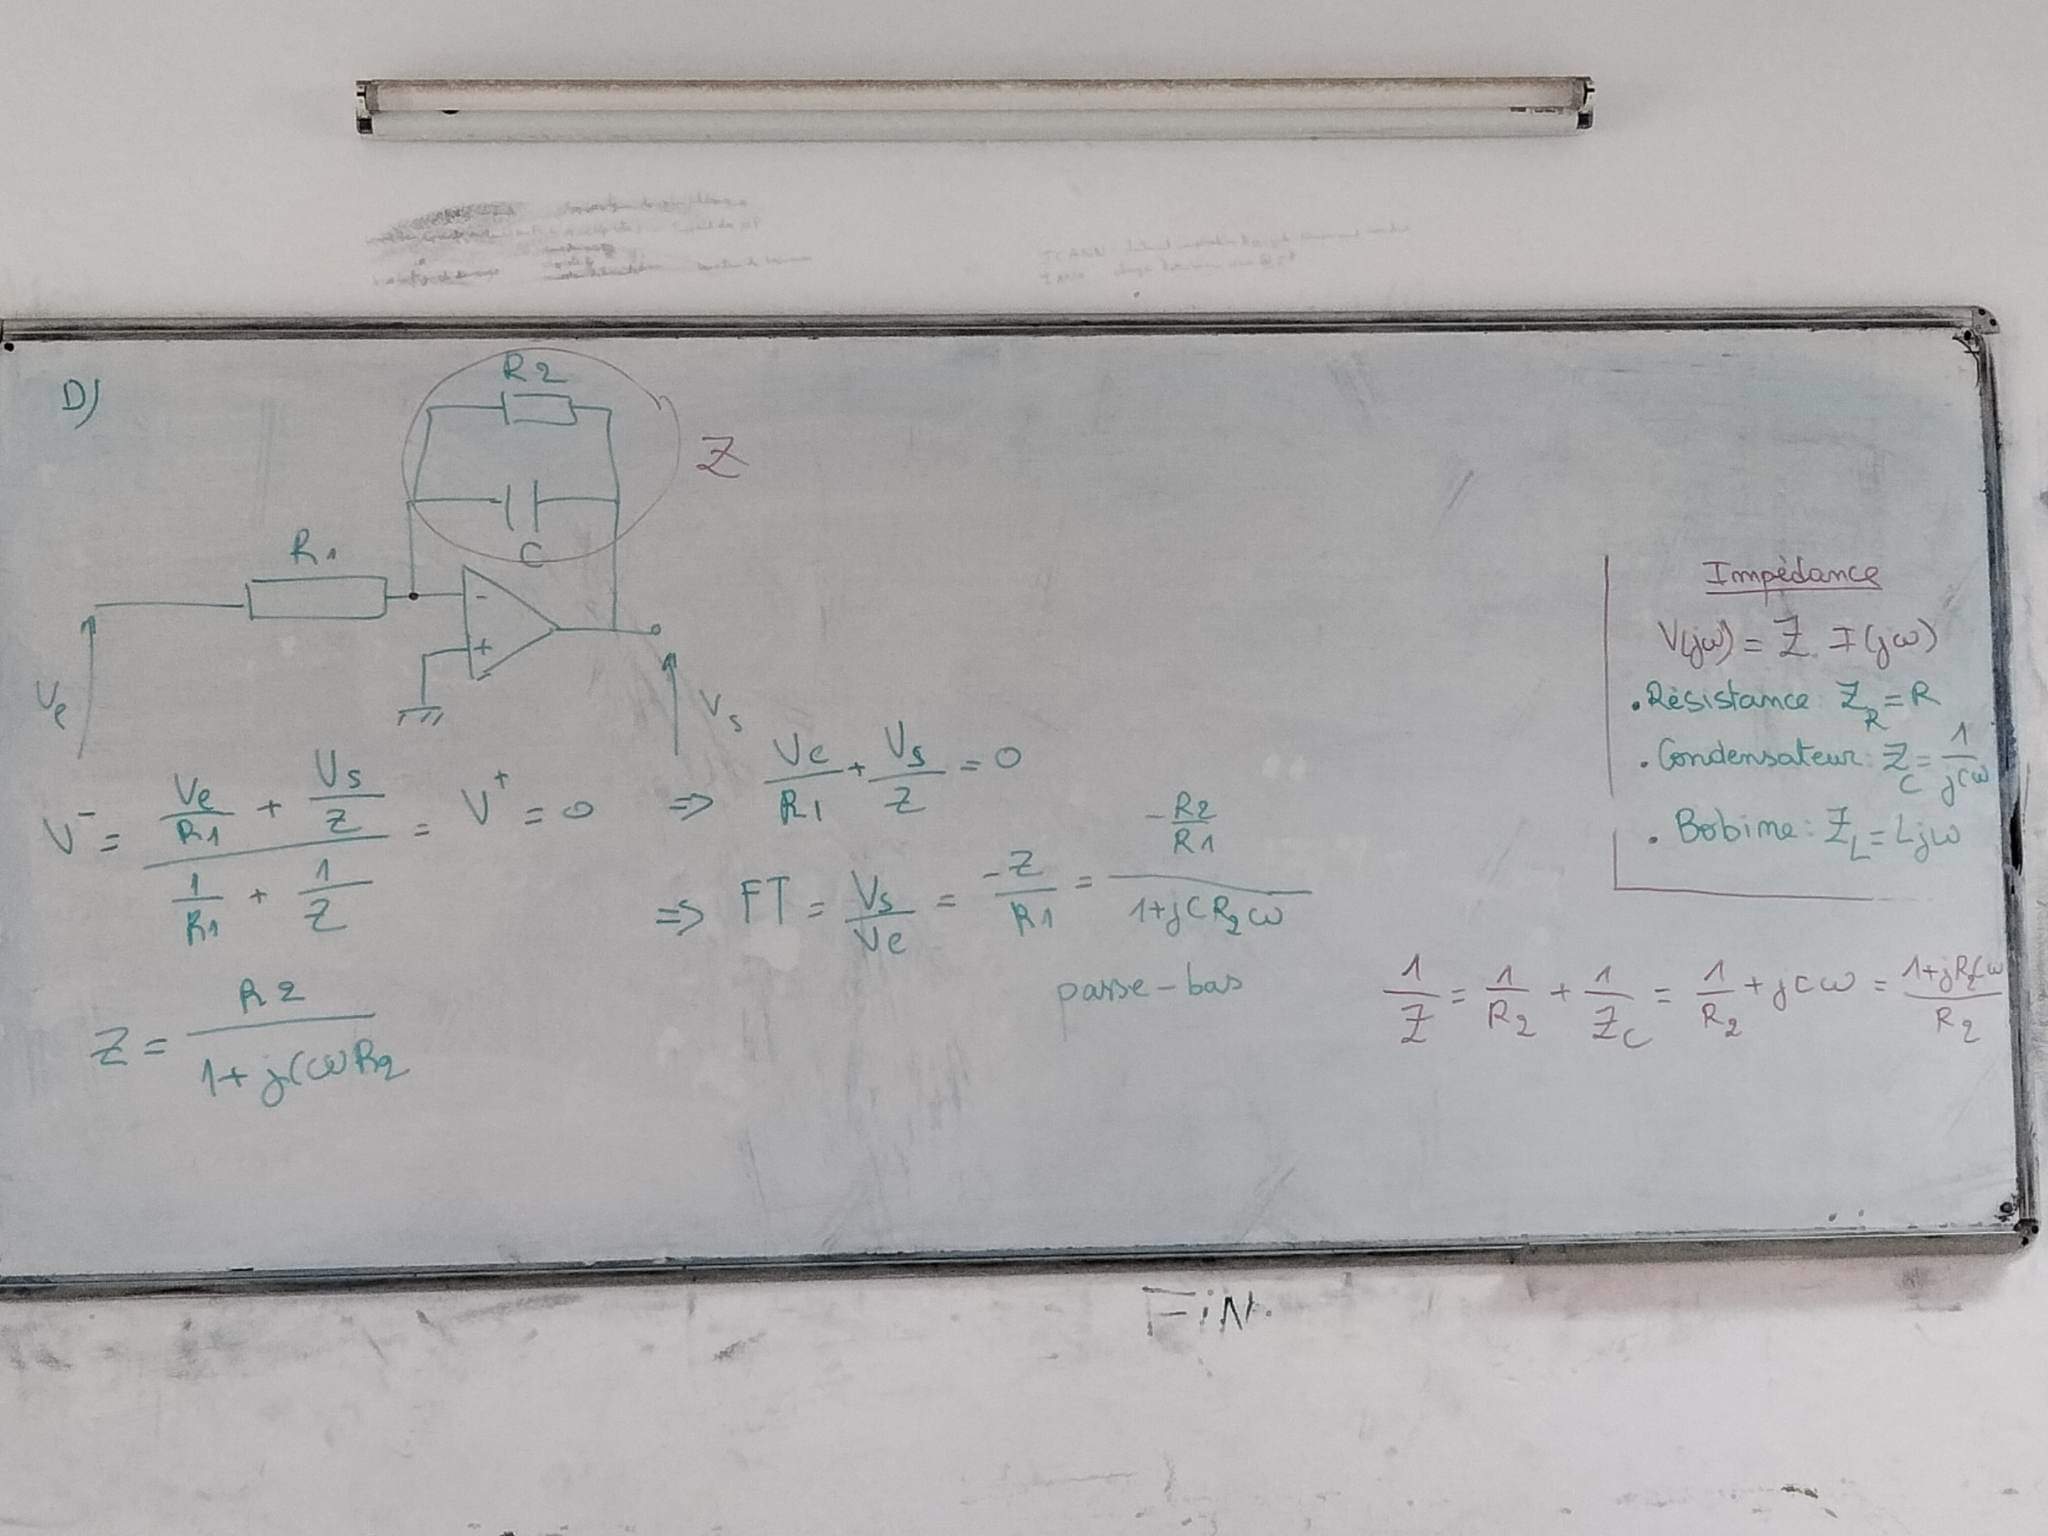 D)
R2
Z
C
R1
-
+
Ve
Vs
V⁻ = (Ve/R1 + Vs/Z) / (1/R1 + 1/Z) = V⁺ = 0 ⇒ Ve/R1 + Vs/Z = 0
⇒ FT = Vs/Ve = -Z/R1 = (-R2/R1) / (1+jCR2ω)
passe-bas
Z = R2 / (1+jCωR2)
Impédance
V(jω) = Z. I(jω)
. Résistance: Z_R = R
. Condensateur: Z_C = 1/jCω
. Bobine: Z_L = Ljω
1/Z = 1/R2 + 1/Z_C = 1/R2 + jCω = (1+jR2Cω)/R2
FiN.